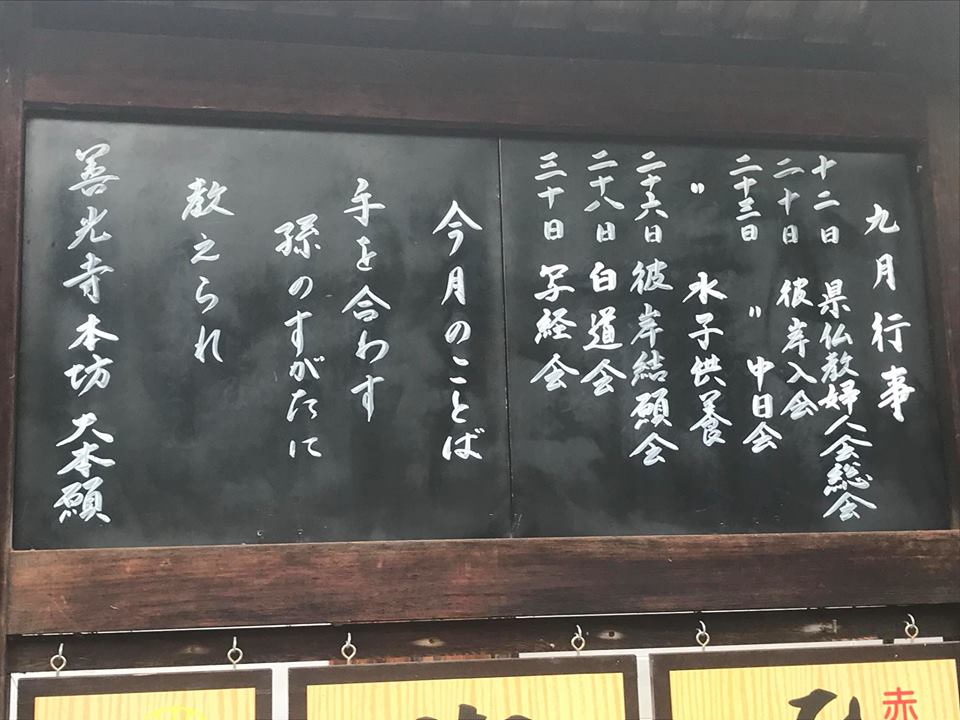 九月行事
十二日 県仏教婦人会総会
二十日 彼岸入会
二十三日 〃 中日会
〃 水子供養
二十六日 彼岸結願会
二十八日 白道会
三十日 写経会
今月のことば
手を合わす
孫のすがたに
教えられ
善光寺本坊 大本願
赤